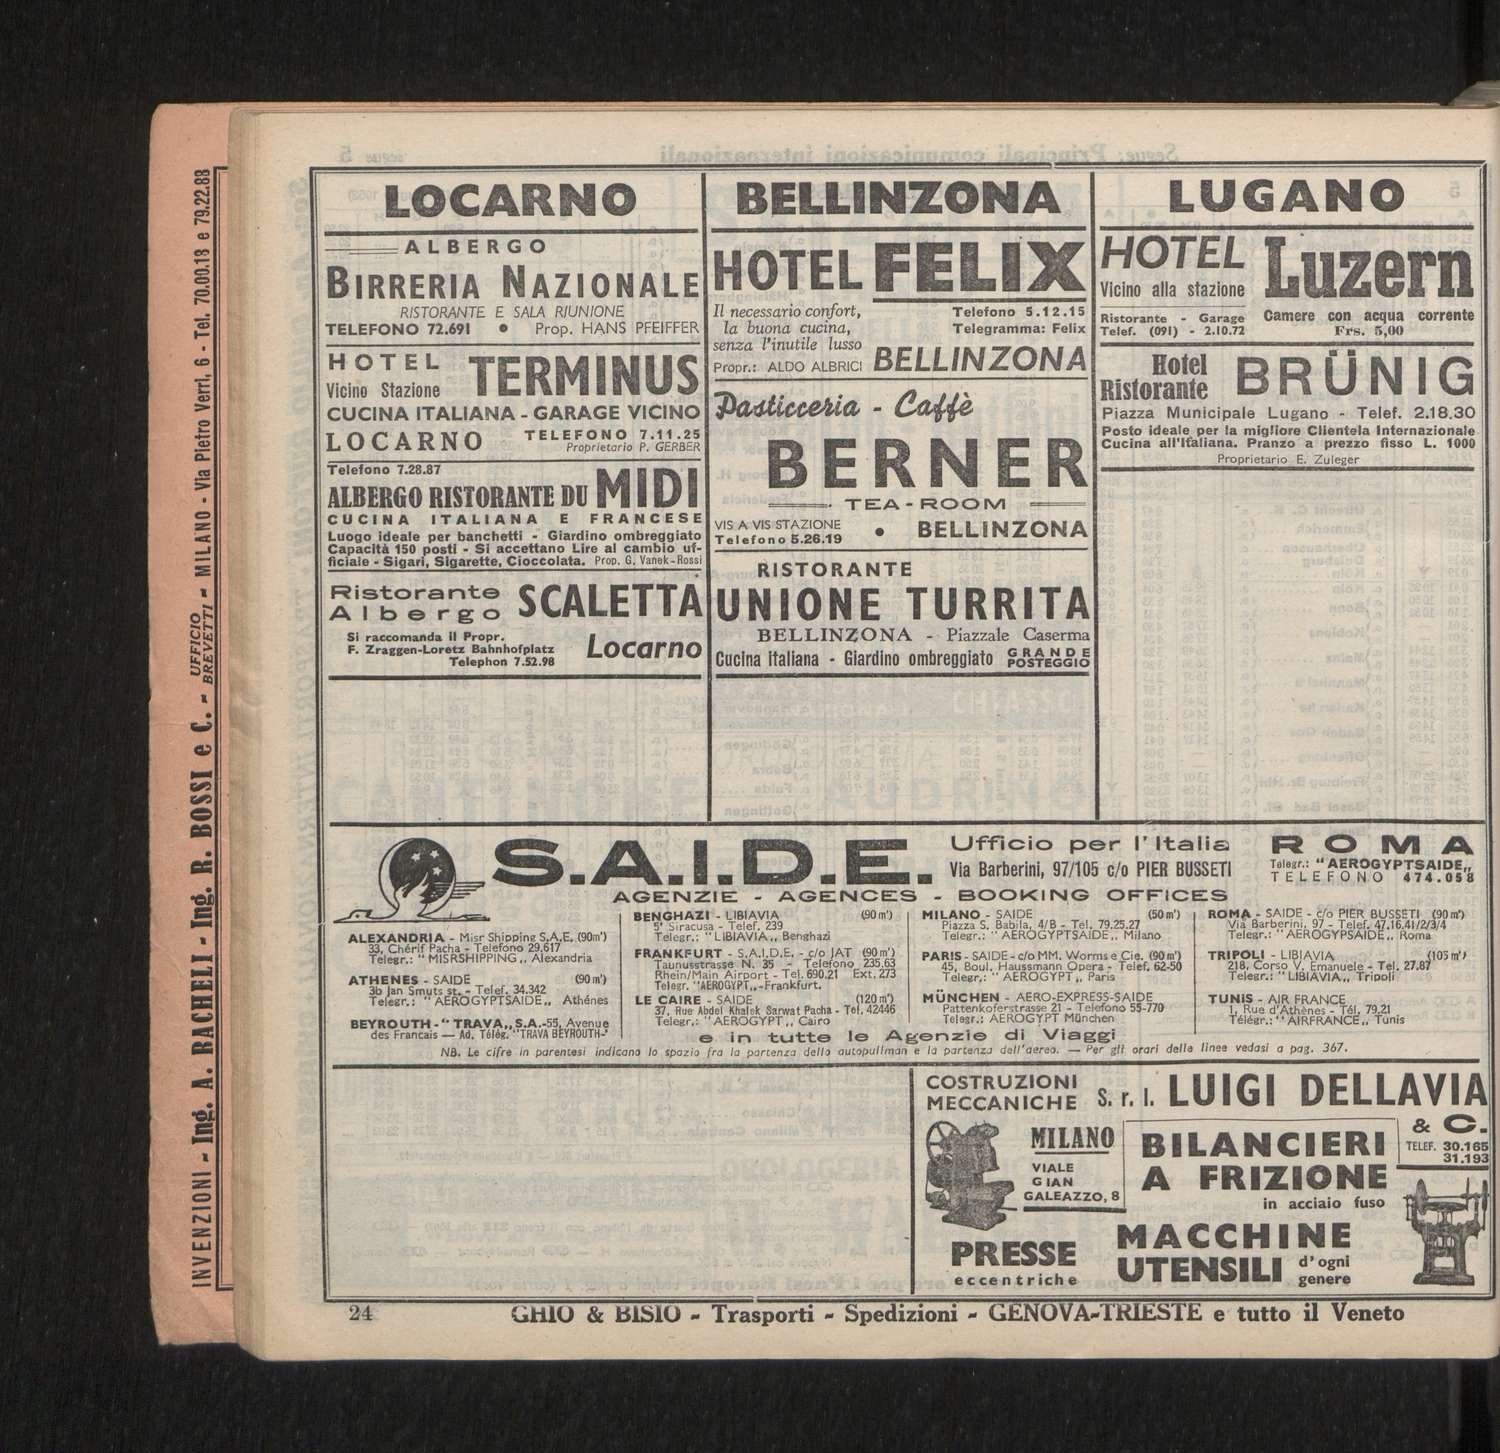 INVENZIONI - Ing. A. RACHELI - Ing. R. BOSSI e C. - UFFICIO BREVETTI - MILANO - Via Pietro Verri, 6 - Tel. 70.00.18 e 79.22.88
LOCARNO
ALBERGO
BIRRERIA NAZIONALE
RISTORANTE E SALA RIUNIONE
TELEFONO 72.691 • Prop. HANS PFEIFFER
HOTEL
Vicino Stazione
TERMINUS
CUCINA ITALIANA - GARAGE VICINO
LOCARNO
TELEFONO 7.11.25
Proprietario P. GERBER
Telefono 7.28.87
ALBERGO RISTORANTE DU MIDI
CUCINA ITALIANA E FRANCESE
Luogo ideale per banchetti - Giardino ombreggiato
Capacità 150 posti - Si accettano Lire al cambio uf-
ficiale - Sigari, Sigarette, Cioccolata. Prop. G. Vanek-Rossi
Ristorante
Albergo
SCALETTA
Si raccomanda il Propr.
F. Zraggen-Loretz Bahnhofplatz
Telephon 7.52.98
Locarno
BELLINZONA
HOTEL FELIX
Il necessario confort,
la buona cucina,
senza l'inutile lusso
Propr.: ALDO ALBRICI
Telefono 5.12.15
Telegramma: Felix
BELLINZONA
Pasticceria - Caffè
BERNER
TEA-ROOM
VIS A VIS STAZIONE
Telefono 5.26.19
• BELLINZONA
RISTORANTE
UNIONE TURRITA
BELLINZONA - Piazzale Caserma
Cucina Italiana - Giardino ombreggiato GRANDE POSTEGGIO
LUGANO
HOTEL
Vicino alla stazione
Luzern
Ristorante - Garage
Telef. (091) - 2.10.72
Camere con acqua corrente
Frs. 5,00
Hotel
Ristorante
BRÜNIG
Piazza Municipale Lugano - Telef. 2.18.30
Posto ideale per la migliore Clientela Internazionale
Cucina all'Italiana. Pranzo a prezzo fisso L. 1000
Proprietario E. Zuleger
S.A.I.D.E.
Ufficio per l'Italia
Via Barberini, 97/105 c/o PIER BUSSETI
ROMA
Telegr.: "AEROGYPTSAIDE„
TELEFONO 474.058
AGENZIE - AGENCES - BOOKING OFFICES
ALEXANDRIA - Misr Shipping S.A.E. (90m')
33, Chérif Pacha - Telefono 29.617
Telegr.: "MISRSHIPPING„ Alexandria
ATHENES - SAIDE (90 m')
3b Jan Smuts st. - Telef. 34.342
Telegr.: "AEROGYPTSAIDE„ Athénes
BEYROUTH-"TRAVA„ S.A.-55, Avenue
des Francais — Ad. Télég. "TRAVA BEYROUTH-"
BENGHAZI - LIBIAVIA (90 m')
5ª Siracusa - Telef. 239
Telegr.: "LIBIAVIA„ Benghazi
FRANKFURT - S.A.I.D.E. - c/o JAT (90 m')
Taunusstrasse N. 35 - Telefono 235.63
Rhein/Main Airport - Tel. 690.21 Ext. 273
Telegr. "AEROGYPT„-Frankfurt.
LE CAIRE - SAIDE (120 m')
37, Rue Abdel Khalek Sarwat Pacha - Tel. 42446
Telegr.: "AEROGYPT„ Cairo
MILANO - SAIDE (50 m')
Piazza S. Babila, 4/B - Tel. 79.25.27
Telegr.: "AEROGYPTSAIDE„ Milano
PARIS - SAIDE - c/o MM. Worms e Cie. (90 m')
45, Boul. Haussmann Opera - Telef. 62-50
Telegr.: "AEROGYPT„ Paris
MÜNCHEN - AERO-EXPRESS-SAIDE
Pattenkoferstrasse 21 - Telefono 55-770
Telegr.: AEROGYPT München
ROMA - SAIDE - c/o PIER BUSSETI (90 m')
Via Barberini, 97 - Telef. 47.16.41/2/3/4
Telegr.: "AEROGYPSAIDE„ Roma
TRIPOLI - LIBIAVIA (105 m')
218, Corso V. Emanuele - Tel. 27.87
Telegr.: "LIBIAVIA„ Tripoli
TUNIS - AIR FRANCE
1, Rue d'Athènes - Tél. 79.21
Télégr.: "AIRFRANCE„ Tunis
e in tutte le Agenzie di Viaggi
NB. Le cifre in parentesi indicano lo spazio fra la partenza dello autopullman e la partenza dell'aereo. — Per gli orari delle linee vedasi a pag. 367.
COSTRUZIONI
MECCANICHE
S. r. l. LUIGI DELLAVIA
& C.
TELEF. 30.165
31.193
MILANO
VIALE
GIAN
GALEAZZO, 8
BILANCIERI
A FRIZIONE
in acciaio fuso
PRESSE
eccentriche
MACCHINE
UTENSILI
d'ogni
genere
24
GHIO & BISIO - Trasporti - Spedizioni - GENOVA-TRIESTE e tutto il Veneto